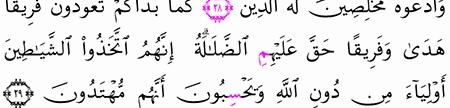 وَٱدۡعُوهُ مُخۡلِصِينَ لَهُ ٱلدِّينَ ٢٨ كَمَا بَدَأَكُمۡ تَعُودُونَ فَرِيقًا
هَدَىٰ وَفَرِيقًا حَقَّ عَلَيۡهِمِ ٱلضَّلَٰلَةُۚ إِنَّهُمُ ٱتَّخَذُواْ ٱلشَّيَٰطِينَ
أَوۡلِيَآءَ مِن دُونِ ٱللَّهِ وَيَحۡسِبُونَ أَنَّهُم مُّهۡتَدُونَ ٢٩